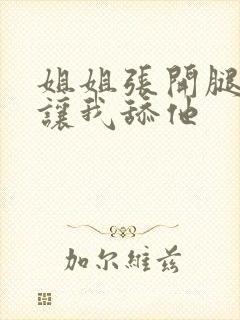 姐姐张開腿
讓我舔他
加尔維兹